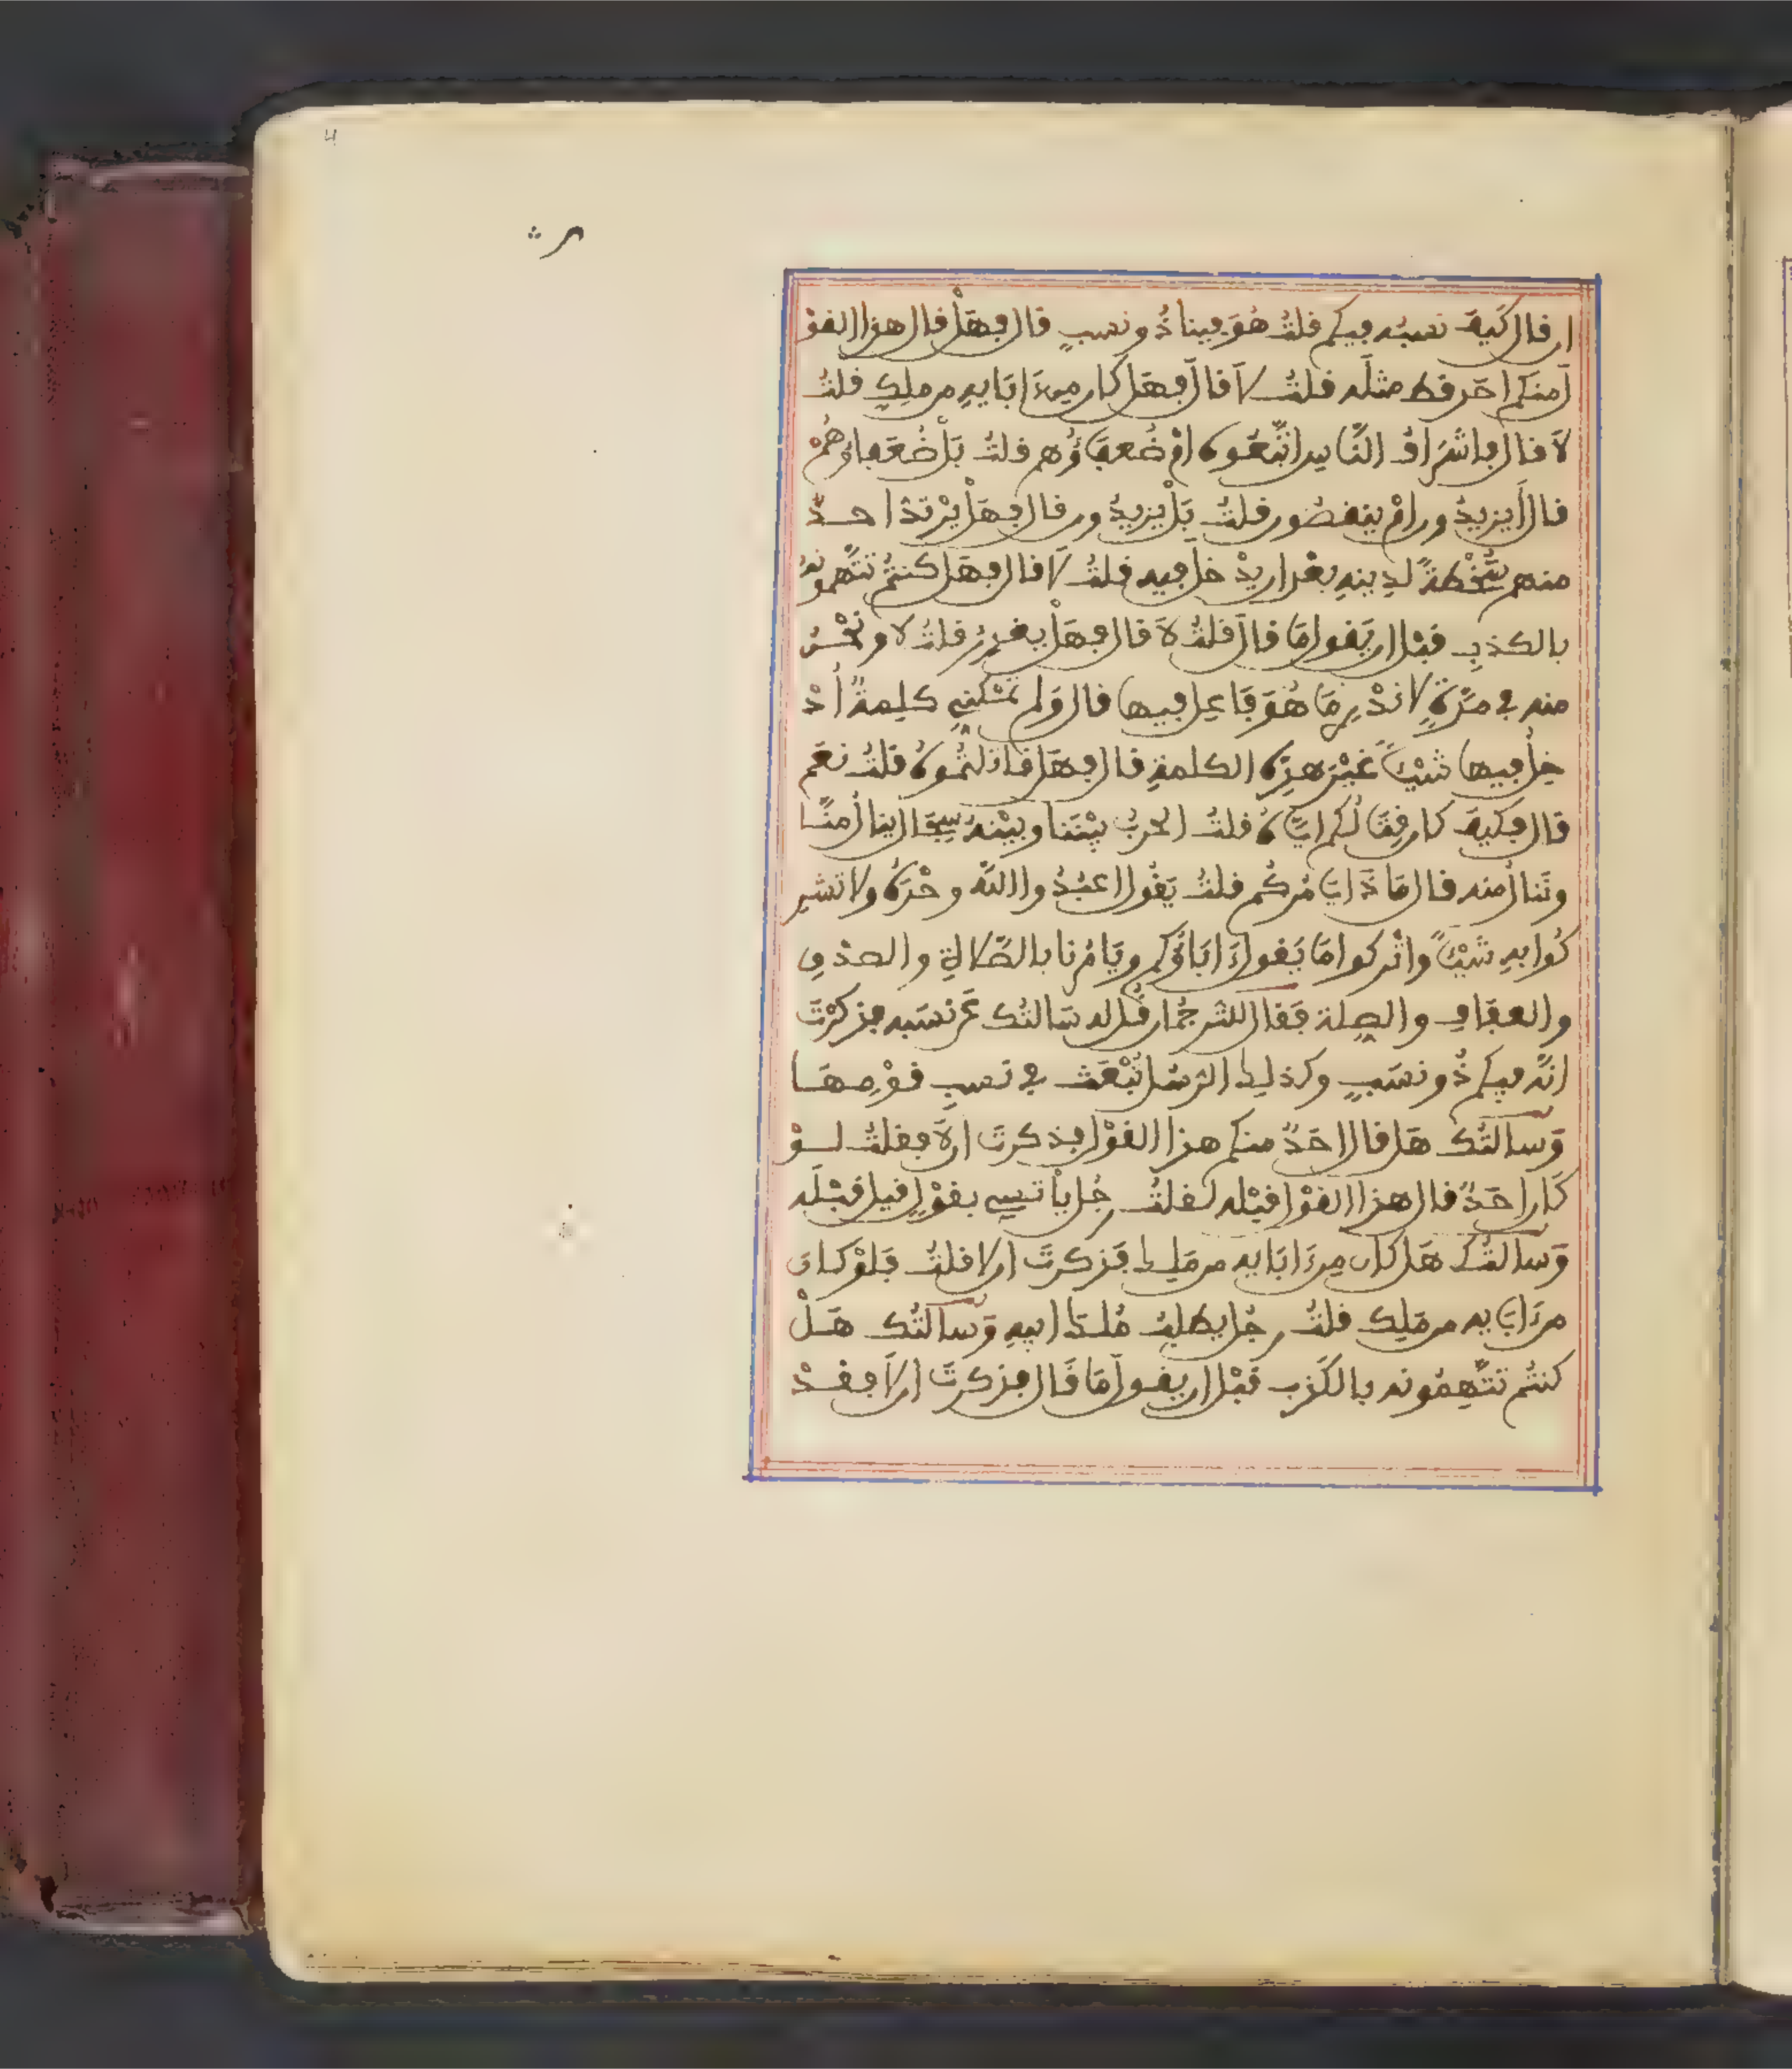 ان قال كَيْفَ نسبُه فيكم قلتُ هُوَ فينا ذُو نسبٍ قال فهَلْ قال هذا القوْ
لَ منكم احَد قط مثلَه قلتُ لاَ قالَ فهَل كان مِنَ ابَايِهِ من ملِكٍ قلتُ
لاَ قال فاشْرَافُ النَّاسِ اتَّبَعُوهُ امْ ضُعفَاؤُهم قلتُ بَلْ ضُعَفاؤهُمْ
قال أَيزيدُون امْ ينقصُون قلتُ بَلْ يزيدُون قال فهَلْ يرْتدُّ احدٌ
منهم سَخْطَةً لدِينِهِ بعْد ان يدْخل فيه قلتُ لاَ قال فهَل كنتُمْ تتَّهمونَهُ
بالكذبِ قبْل ان يَقولَ مَا قالَ قلتُ لاَ قال فهَلْ يغدِرُ قلتُ لا ونحْنُ
منه في مدَّةٍ لا ندْرِي مَا هُوَ فَاعِل فيها قال وَلم تمْكنِّي كلِمةٌ أُدْ
خِلُ فيها شيْـًٔا غيْرَ هذِهِ الكلمةِ قال فهَل قاتلْتُمُوهُ قلتُ نعَم
قال فكيفَ كان قِتَالُكم ايَّاهُ قلتُ الحربُ بيْنَنا وبيْنَهُ سِجَال ينال مِنَّا
ونَنال منه قال مَاذَا يَامُركُم قلتُ يَقُول اعبُدُوا اللَّه وحْدَهُ ولا تشر
كُوا بهِ شَيْـًٔا واتْركوا مَا يَقول ءَابَاؤُكم ويَامُرنا بالصَّلاةِ والصدْقِ
والعفَافِ والصِلة فَقال للترجُمان قُل له سَالتُك عَن نسَبه فذكرْتَ
انَّه فيكم ذُو نسَبٍ وكذلِك الرسُل تُبْعَث في نَسبِ قوْمِهَا
وَسالتُك هَل قال احَدٌ منكم هذا القوْل فذكرتَ ان لاَ فقلتُ لوْ
كَان احَدٌ قال هذا القوْل قبْله لقلتُ رجُل يَأْتسِي بقوْلٍ قيل قبْلَه
وَسالتُك هَل كان مِن ءَابَايه من مَلِك فَذكرتَ ان لا قلتُ فَلوْ كان
من ءَابَايه من مَلِك قلتُ رجُل يطلبُ مُلكَ ابيهِ وَسالتُك هَلْ
كنتُم تتَّهِمُونه بالكَذِب قبْل ان يقولَ مَا قَال فذكرتَ ان لاَ فقدْ
4